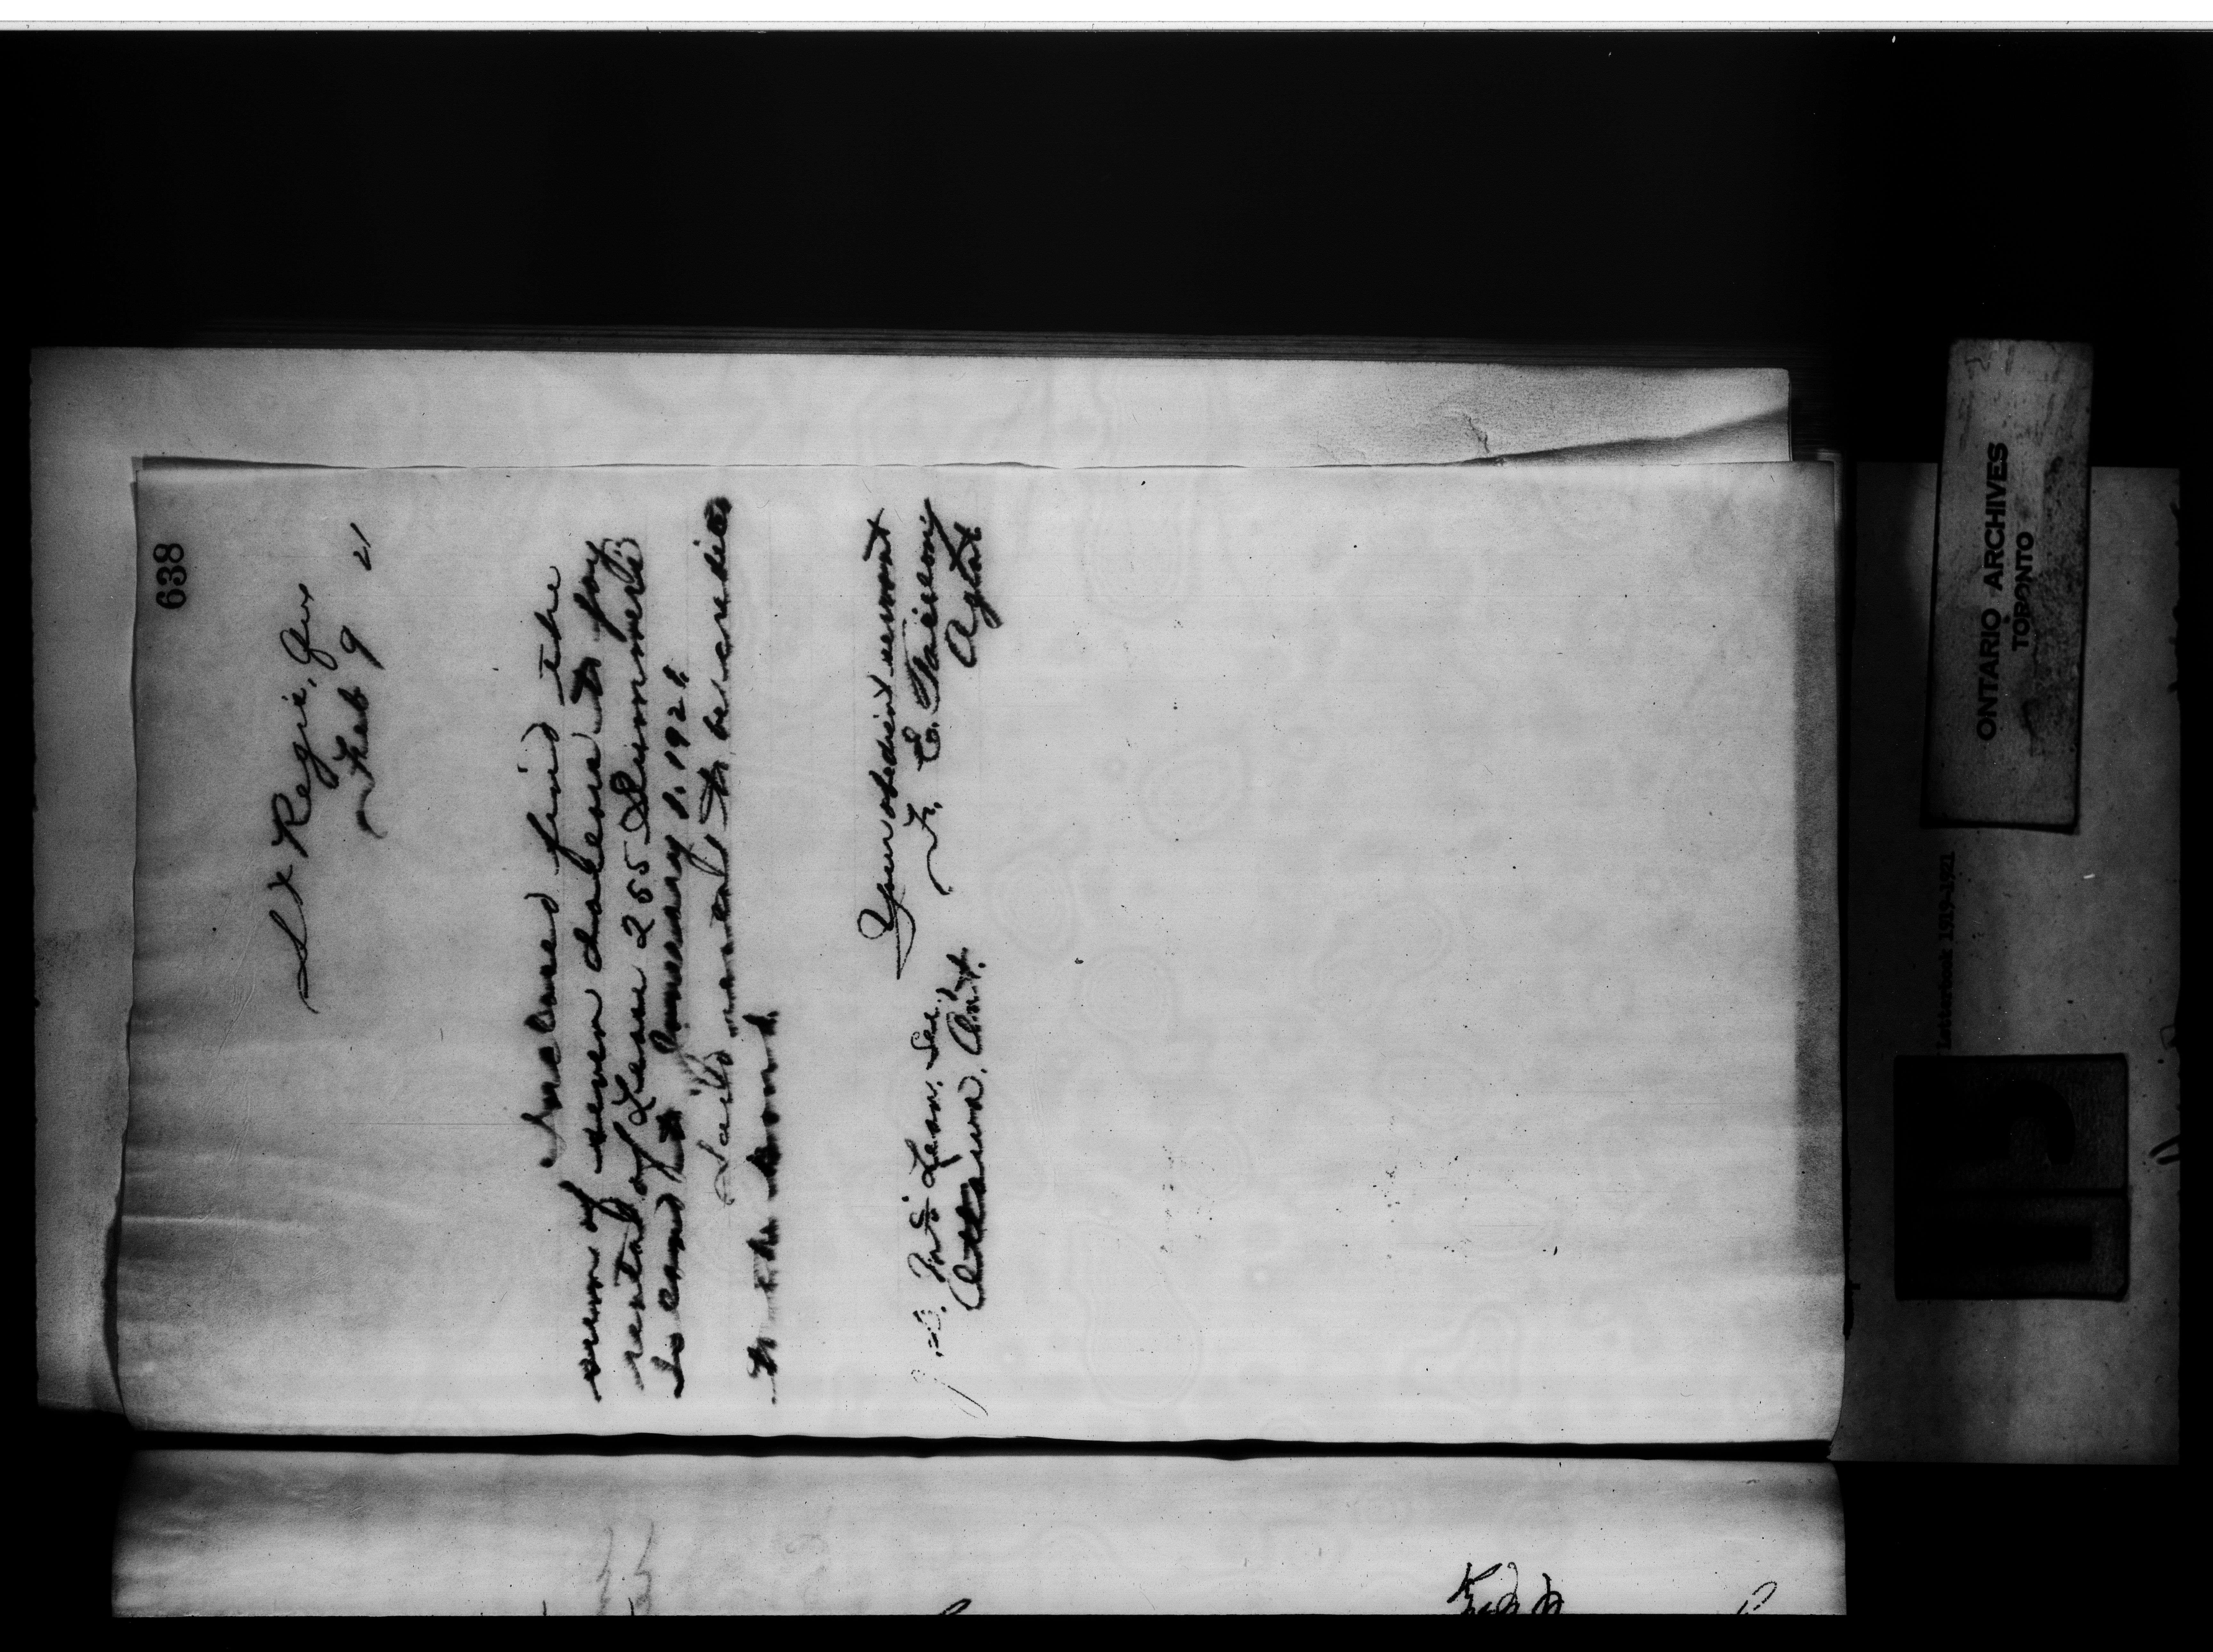 638
St Regis, Que
Feb 9 21
Inclosed find the
sum of seven dollars to pay
rental of Lease 255 Summers
Island to January 1. 1921.
Said rental to be credited
to the band.
Your obedient servant
F. E. Taillon
Agent
J. D. McLean. Sec.
Ottawa, Ont.
ONTARIO ARCHIVES
TORONTO
Letterbook 1919-1921